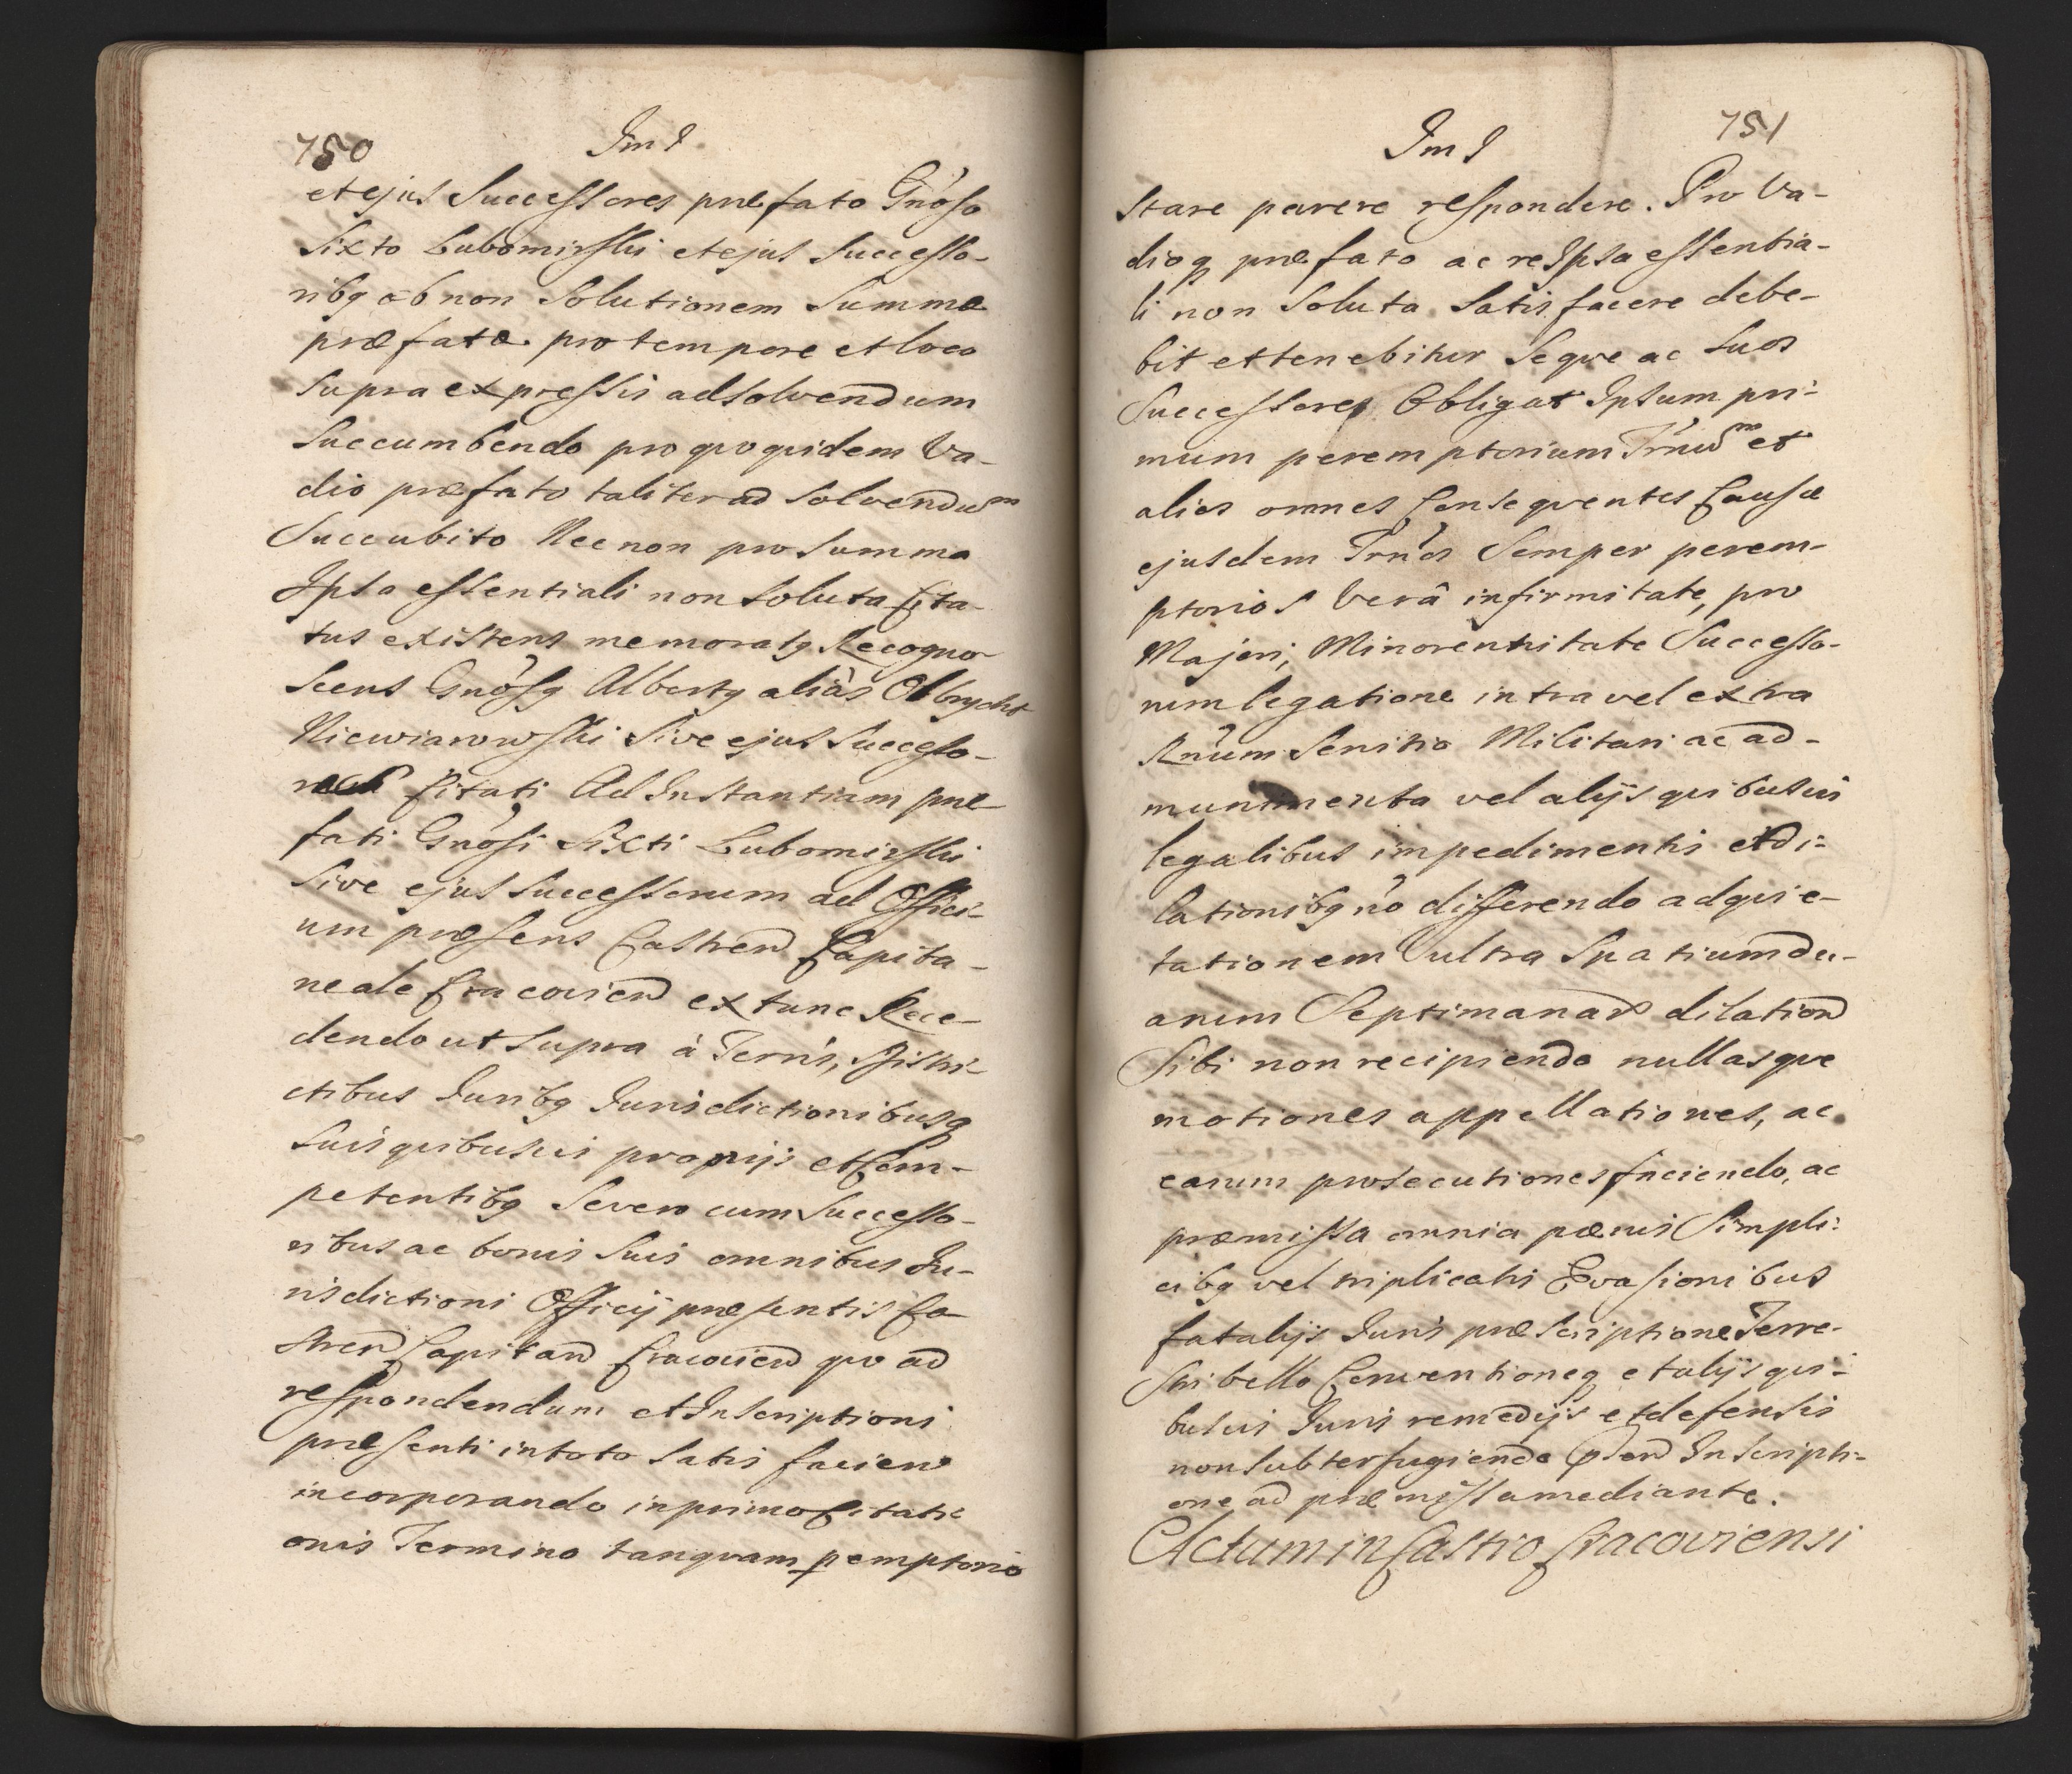 750
Im I
et ejus Successores præfato Gnõso
Sixto Lubomirski et ejus Successo-
ribq ob non Solutionem Summæ
præfatæ pro tempore et loco
Supra expressis ad solvendum
Succumbendo pro quo quidem Va-
dio præfato taliter ad Solvendum
Succubito Nec non pro Summa
Ipsa essentiali non Soluta Cita-
tus existens memoratq Recogno-
scens Gnõsq Albertq aliàs Olbrycht
Niewiarowski Sive ejus Successo-
res Citati Ad Instantiam præ
fati Gnõsi Sixti Lubomirski
Sive ejus Successorum ad Offici-
um præsens Castren Capita-
neale Cracovien ex tunc Rece-
dendo ut Supra à Terris, Distri-
ctibus Juribq Jurisdictionibusq
Suis quibusvis propriis et Com-
petentibq Severo cum Successo-
ribus ac bonis Suis omnibus Ju-
risdictioni Officij præsentis Ca-
stren Capitan Cracovien quo ad
respondendum et Inscriptioni
præsenti in toto Satis facien
incorporando in primo Citati-
onis Termino tanquam pemptorio
751
Im I
Stare parere respondere. Pro Va-
dioq præfato ac re Ipsa essentia-
li non Soluta Satis facere debe-
bit et tenebitur Seque ac Suos
Successores Obligat Ipsum pri-
mum peremptorium Trnum et
alios omnes Consequentes Causæ
ejusdem Trnos Semper perem-
ptorios Verâ infirmitate, pro
Majori, Minorennitate Successo-
rum legatione intra vel extra
Rnum Servitio Militari ac ad-
munimenta vel alijs quibusvis
legalibus impedimentis et di-
lationibq no differendo adquie-
tationem Vultra Spatium du-
arum Septimanar dilation
Sibi non recipiendo nullasque
motiones appellationes, ac
earum prosecutiones faciendo, ac
præmissa omnia pænis Simpli-
cibq vel triplicatis Evasionibus
fatalijs Juris præscriptione Terre-
stri bello Conventioneq et alijs qui-
busvis Juris remedijs et defensis
non Subterfugiendo Inscripti-
one ad præmissa mediante.
Actum in Castro Cracoviensi